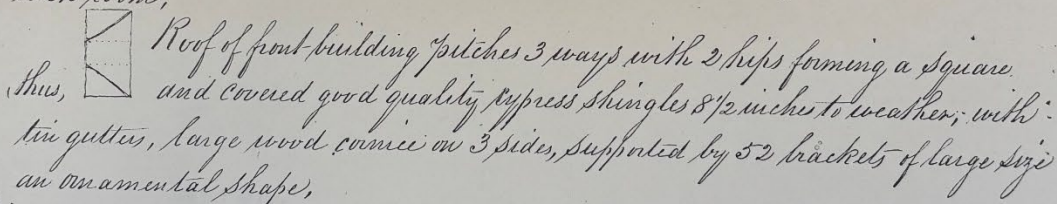 Roof of front-building pitches 3 ways with 2 hips forming a square.
thus, and covered good quality cypress shingles 8 1/2 inches to weather, with
tin gutters, large wood cornice on 3 sides, supported by 52 brackets of large size
an ornamental shape,